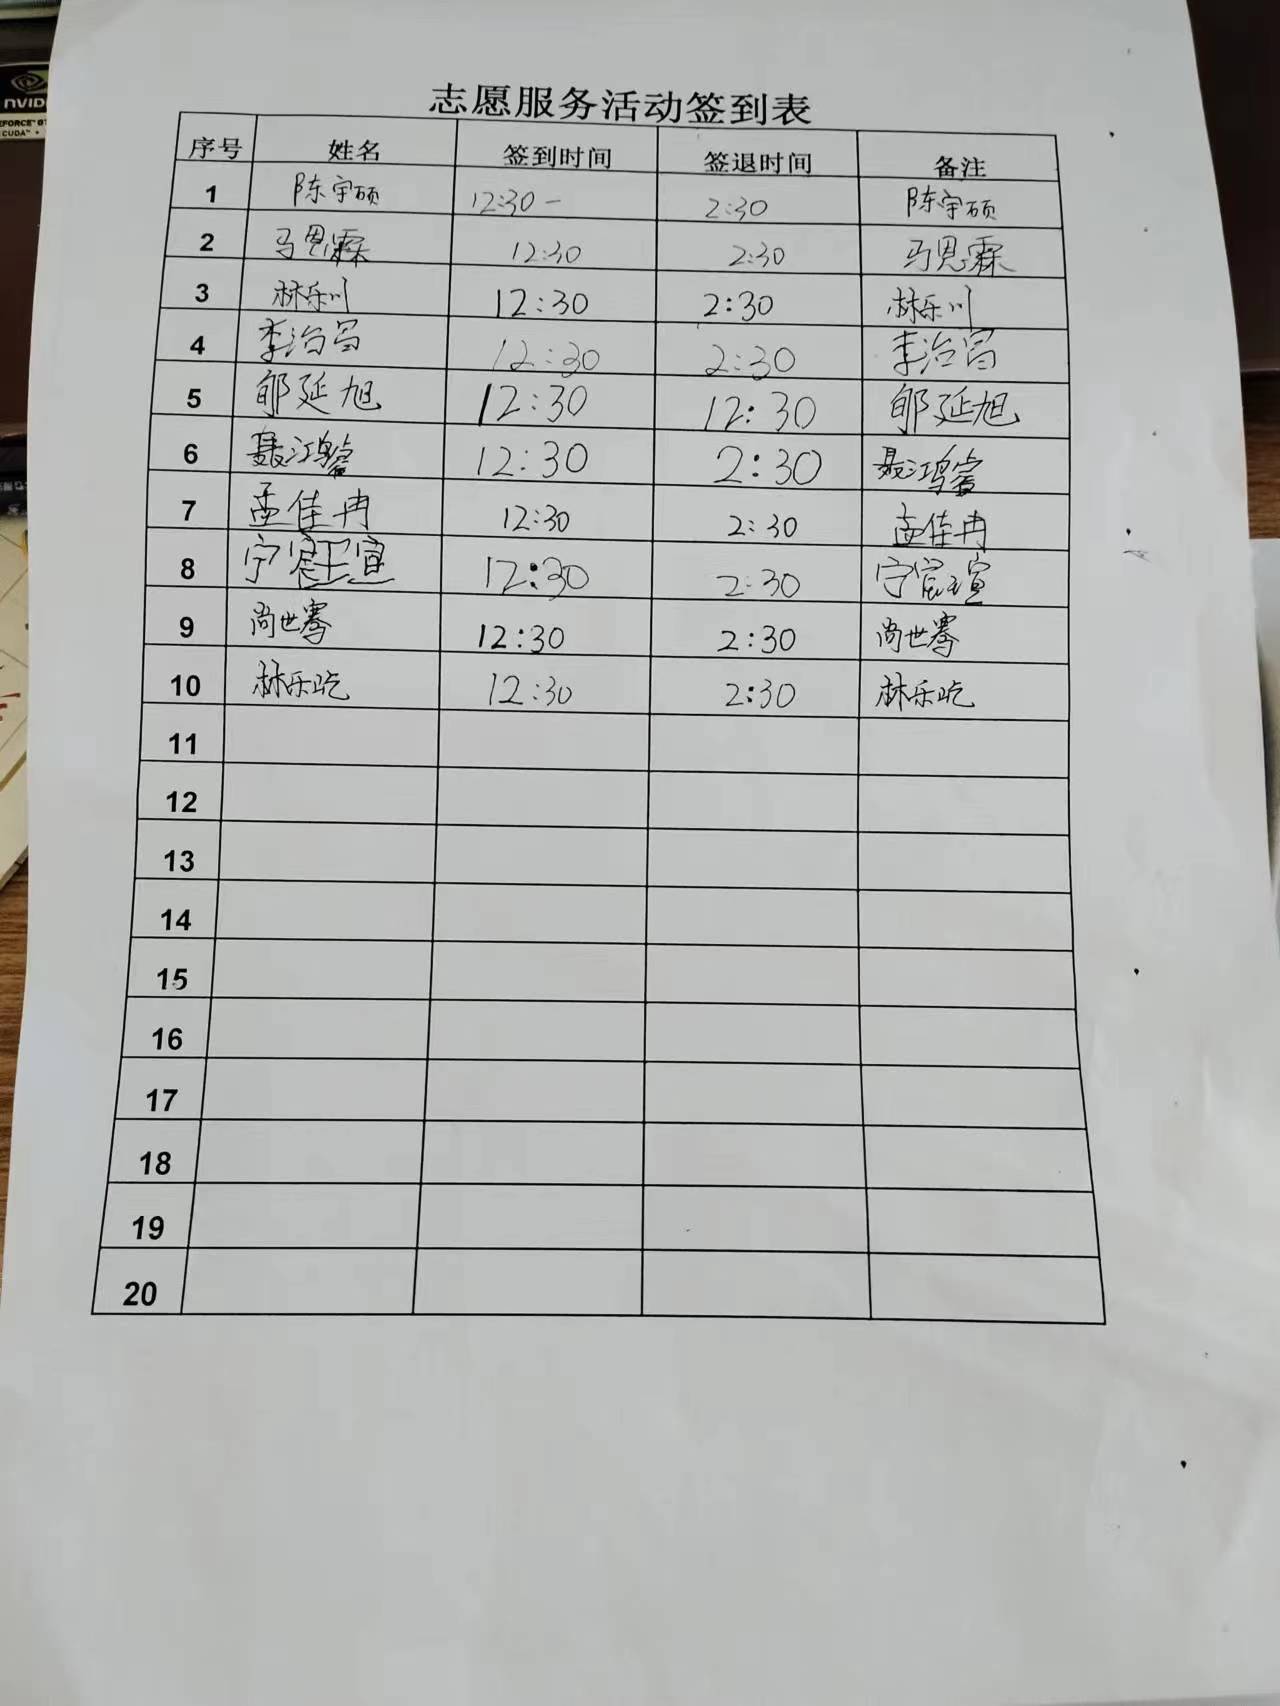 nVIDI
EFORCE GT
CUDA
志愿服务活动签到表
序号 姓名 签到时间 签退时间 备注
1 陈宇硕 12:30- 2:30 陈宇硕
2 马恩霖 12:30 2:30 马恩霖
3 林乐川 12:30 2:30 林乐川
4 李治 12:30 2:30 李治
5 郇延旭 12:30 12:30 郇延旭
6 聂鸿睿 12:30 2:30 聂鸿睿
7 孟佳冉 12:30 2:30 孟佳冉
8 宁宸瑄 12:30 2:30 宁宸瑄
9 尚世骞 12:30 2:30 尚世骞
10 林乐屹 12:30 2:30 林乐屹
11
12
13
14
15
16
17
18
19
20